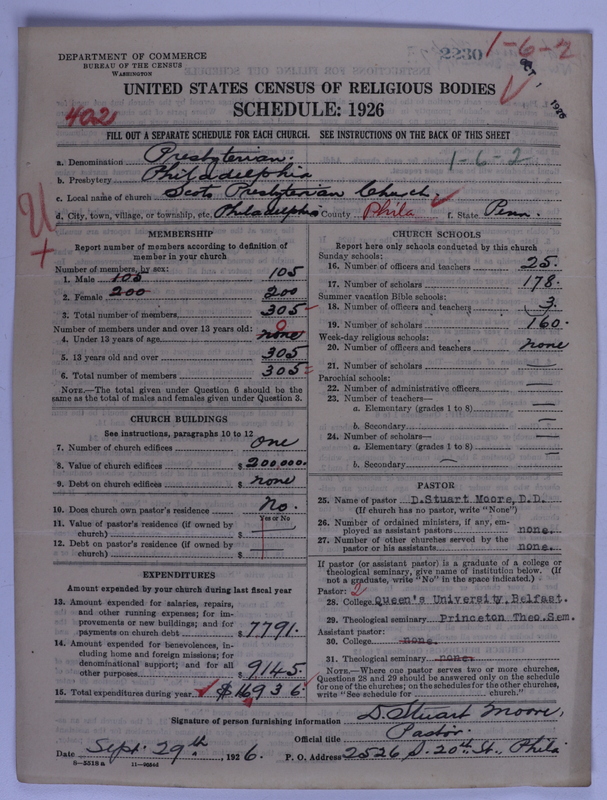 2230
1-6-2
DEPARTMENT OF COMMERCE
BUREAU OF THE CENSUS
WASHINGTON
1926
UNITED STATES CENSUS OF RELIGIOUS BODIES
SCHEDULE: 1926
402
FILL OUT A SEPARATE SCHEDULE FOR EACH CHURCH. SEE INSTRUCTIONS ON THE BACK OF THIS SHEET
a. Denomination Presbyterian.
1-6-2
b. Presbytery Philadelphia
c. Local name of church Scots Presbyterian Church.
d. City, town, village, or township, etc. Philadelphia County Phila f. State Penn.
MEMBERSHIP
Report number of members according to definition of
member in your church
Number of members, by sex:
1. Male 105 105
2. Female 200 200
3. Total number of members 305
Number of members under and over 13 years old:
4. Under 13 years of age none 0
5. 13 years old and over 305
6. Total number of members 305
NOTE.—The total given under Question 6 should be the
same as the total of males and females given under Question 3.
CHURCH BUILDINGS
See instructions, paragraphs 10 to 12
7. Number of church edifices One
8. Value of church edifices $ 200,000.
9. Debt on church edifices $ none
10. Does church own pastor's residence No.
Yes or No
11. Value of pastor's residence (if owned by
church) $
12. Debt on pastor's residence (if owned by
church) $
EXPENDITURES
Amount expended by your church during last fiscal year
13. Amount expended for salaries, repairs,
and other running expenses; for im-
provements or new buildings; and for
payments on church debt $ 7791.
14. Amount expended for benevolences, in-
cluding home and foreign missions; for
denominational support; and for all
other purposes $ 9145
15. Total expenditures during year $ 16936
CHURCH SCHOOLS
Report here only schools conducted by this church
Sunday schools:
16. Number of officers and teachers 25.
17. Number of scholars 178.
Summer vacation Bible schools:
18. Number of officers and teachers 3.
19. Number of scholars 160.
Week-day religious schools:
20. Number of officers and teachers none
21. Number of scholars —
Parochial schools:
22. Number of administrative officers —
23. Number of teachers—
a. Elementary (grades 1 to 8) —
b. Secondary —
24. Number of scholars—
a. Elementary (grades 1 to 8) —
b. Secondary —
PASTOR
25. Name of pastor D.Stuart Moore, D.D.
(If church has no pastor, write "None")
26. Number of ordained ministers, if any, em-
ployed as assistant pastors none.
27. Number of other churches served by the
pastor or his assistants none.
If pastor (or assistant pastor) is a graduate of a college or
theological seminary, give name of institution below. (If
not a graduate, write "No" in the space indicated.)
Pastor: 2
28. College Queen's University, Belfast.
29. Theological seminary Princeton Theo.Sem.
Assistant pastor:
30. College none.
31. Theological seminary none.
NOTE.—Where one pastor serves two or more churches,
Questions 28 and 29 should be answered only on the schedule
for one of the churches; on the schedules for the other churches,
write "See schedule for church."
Signature of person furnishing information D. Stuart Moore,
Official title Pastor.
Date Sept. 29th, 1926. P. O. Address 2526 S. 20th St., Phila
8-3518a